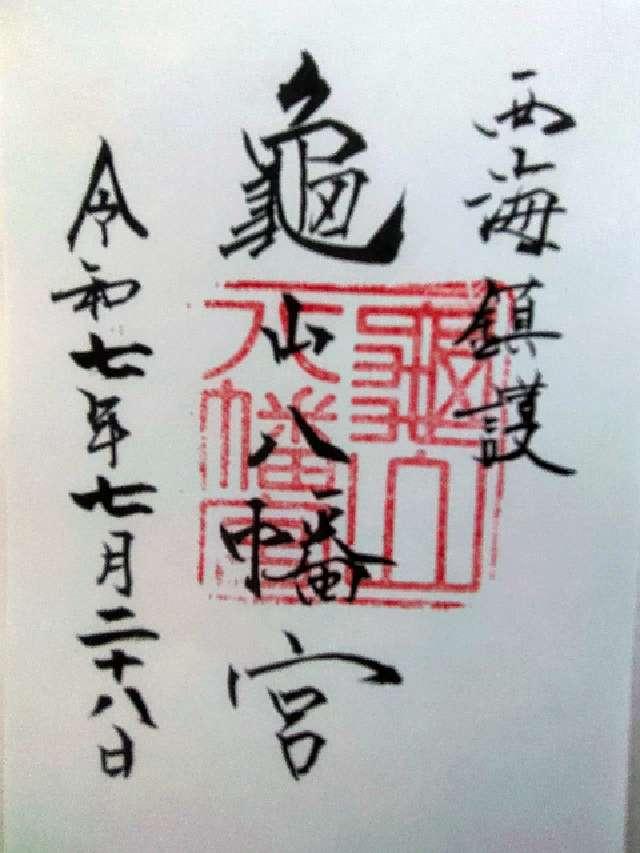 西海鎮護
龜山八幡宮
龜山八幡宮
令和七年七月二十八日